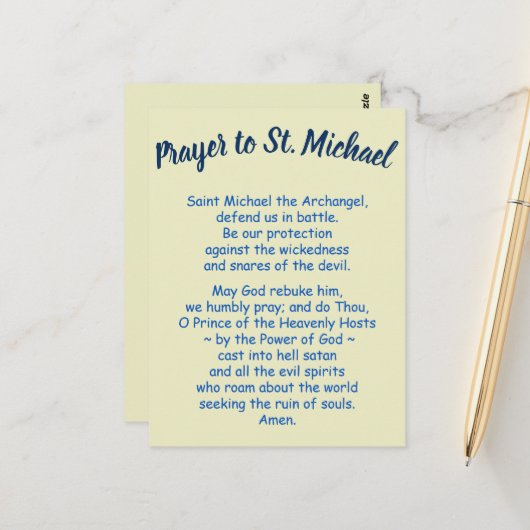 zazzle
Prayer to St. Michael
Saint Michael the Archangel,
defend us in battle.
Be our protection
against the wickedness
and snares of the devil.
May God rebuke him,
we humbly pray; and do Thou,
O Prince of the Heavenly Hosts
~ by the Power of God ~
cast into hell satan
and all the evil spirits
who roam about the world
seeking the ruin of souls.
Amen.